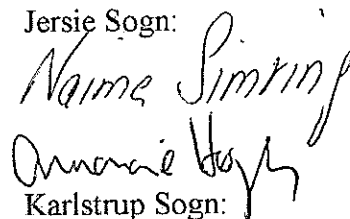 Jersie Sogn:
Naima Simring
Annamarie Høgh
Karlstrup Sogn: